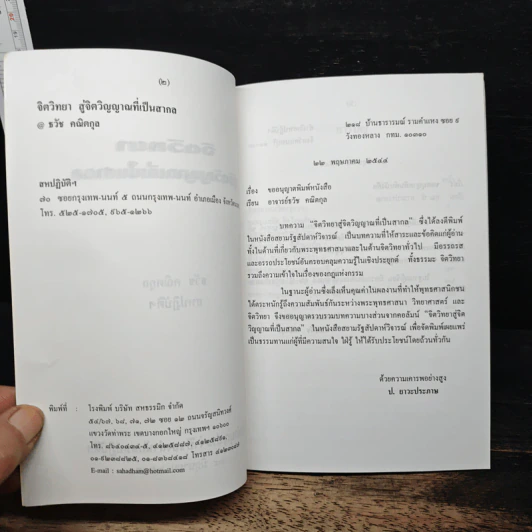 (๒)
จิตวิทยา สู่จิตวิญญาณที่เป็นสากล
@ ธวัช คณิตกุล
สหปฏิบัติฯ
๗๐ ซอยกรุงเทพ-นนท์ ๕ ถนนกรุงเทพ-นนท์ อำเภอเมือง
โทร. ๕๒๕-๑๗๐๕, ๙๖๕-๑๒๖๖
พิมพ์ที่ : โรงพิมพ์ บริษัท สหธรรมิก จำกัด
๕๔/๖๗, ๖๘, ๗๑, ๗๒ ซอย ๑๒ ถนนจรัญสนิทวงศ์
แขวงวัดท่าพระ เขตบางกอกใหญ่ กรุงเทพฯ ๑๐๖๐๐
โทร. ๘๖๔๐๔๓๔-๕, ๔๑๒๕๘๘๗, ๔๑๒๕๘๕๑,
E-mail : sahadham@hotmail.com
๒๑๘ บ้านธารารมณ์ รามคำแหง ซอย ๙
วังทองหลาง กทม. ๑๐๓๑๐
๒๒ พฤษภาคม ๒๕๔๔
เรื่อง ขออนุญาตพิมพ์หนังสือ
เรียน อาจารย์ธวัช คณิตกุล
บทความ "จิตวิทยาสู่จิตวิญญาณที่เป็นสากล" ซึ่งได้ลงตีพิมพ์
ในหนังสือสยามรัฐสัปดาห์วิจารณ์ เป็นบทความที่ให้สาระและข้อคิดแก่ผู้อ่าน
ทั้งในด้านที่เกี่ยวกับพระพุทธศาสนาและในด้านจิตวิทยาทั่วไป มีอรรถรส
และอรรถประโยชน์อันครอบคลุมความรู้ในเชิงประยุกต์ ทั้งธรรมะ จิตวิทยา
รวมถึงความเข้าใจในเรื่องของกฎแห่งกรรม
ในฐานะผู้อ่านซึ่งเล็งเห็นคุณค่าในผลงานที่ทำให้พุทธศาสนิกชน
ได้ตระหนักรู้ถึงความสัมพันธ์กันระหว่างพระพุทธศาสนา วิทยาศาสตร์ และ
จิตวิทยา จึงขออนุญาตรวบรวมบทความบางส่วนจากคอลัมน์ "จิตวิทยาสู่จิต
วิญญาณที่เป็นสากล" ในหนังสือสยามรัฐสัปดาห์วิจารณ์ เพื่อจัดพิมพ์เผยแพร่
เป็นธรรมทานแก่ผู้ที่มีความสนใจ ใฝ่รู้ ให้ได้รับประโยชน์โดยถ้วนทั่วกัน
ด้วยความเคารพอย่างสูง
ป. ยาวะประภาษ